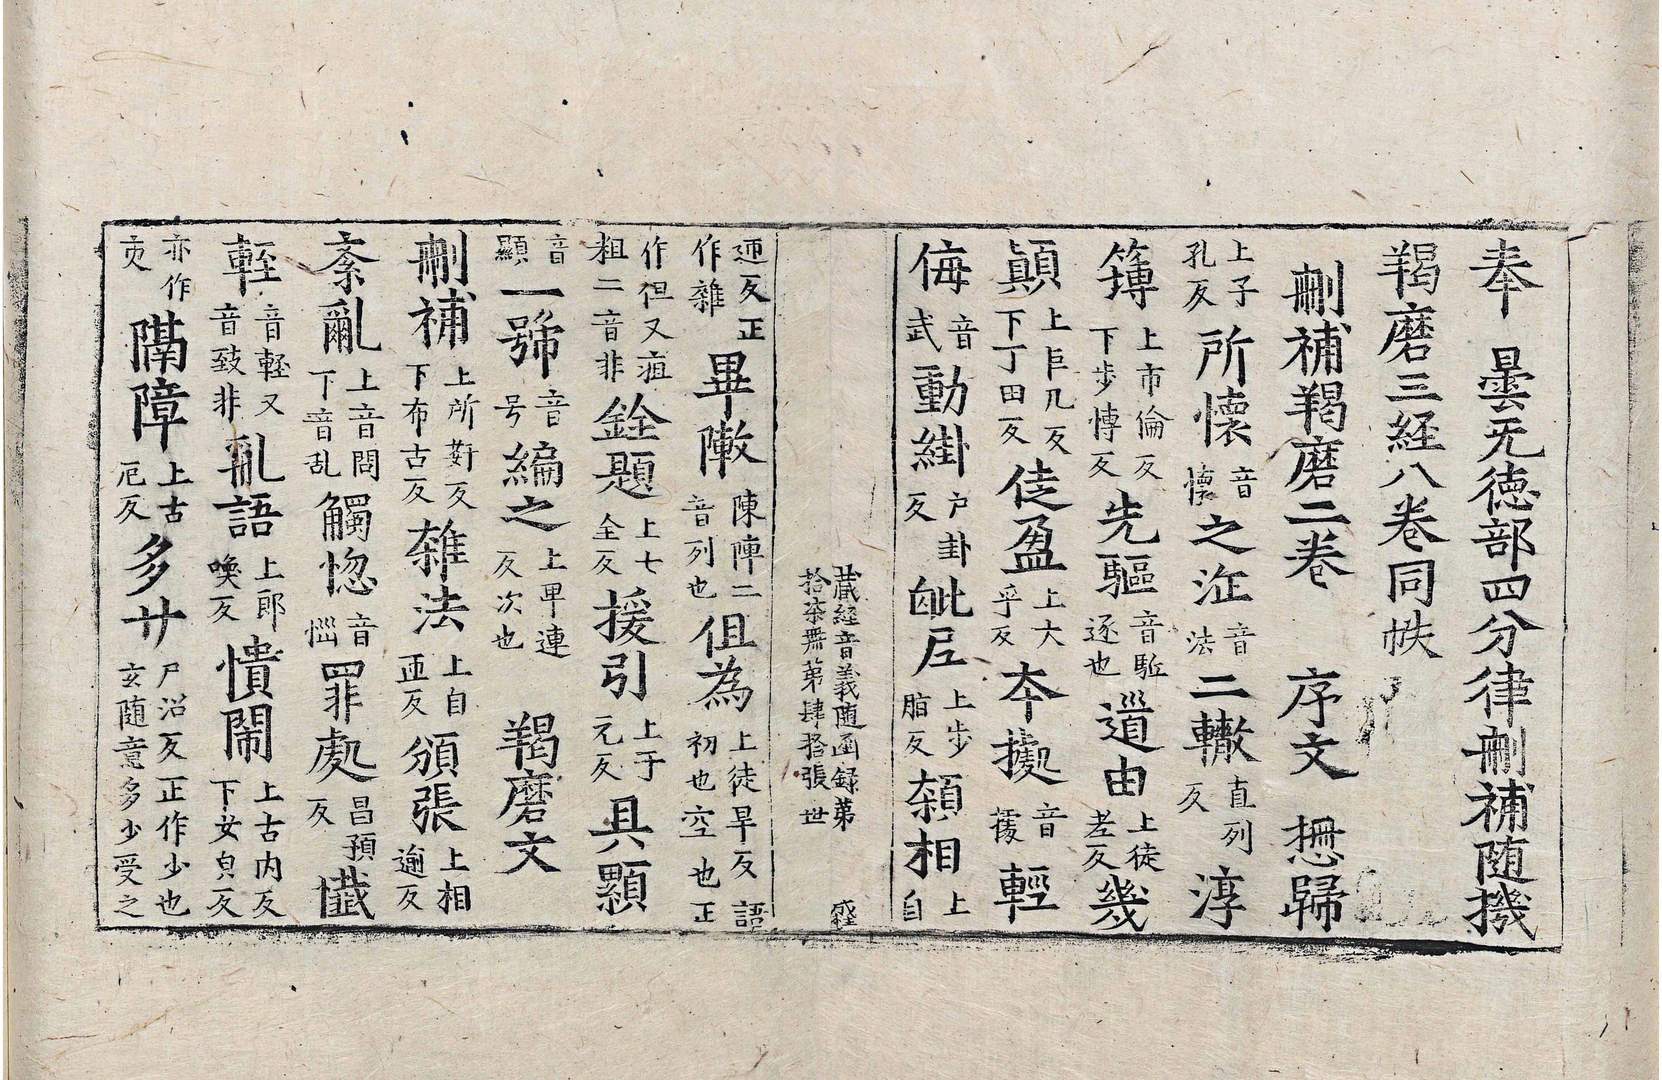 奉 曇无德部四分律刪補随機
羯磨三経八卷同帙
刪補羯磨二卷 序文 揔歸
上子孔反 所懷 音懷 之㳒 音法 二轍 直列反 淳
簿 上市倫反下步愽反 先驅 音駈逐也 遒由 上徒老反 幾
顛 上巨几反下丁田反 徒盈 上大乎反 夲㩀 音據 輕
侮 音武 動絓 户卦反 皉𡰱 上步脂反 𩔗相 上自
藏經音義随函録第
拾柒𠕋第肆拾張 世
迊反正作雜 畢陳 陳陣二音列也 伹為 上徒旱反語初也空也正
作但又疽粗二音非 銓題 上七全反 援引 上于元反 具顯
音顯 一號 音号 編之 上卑連反次也 羯磨文
刪補 上所姧反下布古反 雜法 上自迊反 頒張 上相逾反
紊亂 上音問下音乱 觸惚 音惱 罪處 昌預反 懺
輊 音輕又音致非 乱語 上郎喚反 憒鬧 上古内反下女皃反
亦作㕛 隔障 上古厄反 多廾 尸沼反正作少也玄随意多少受之